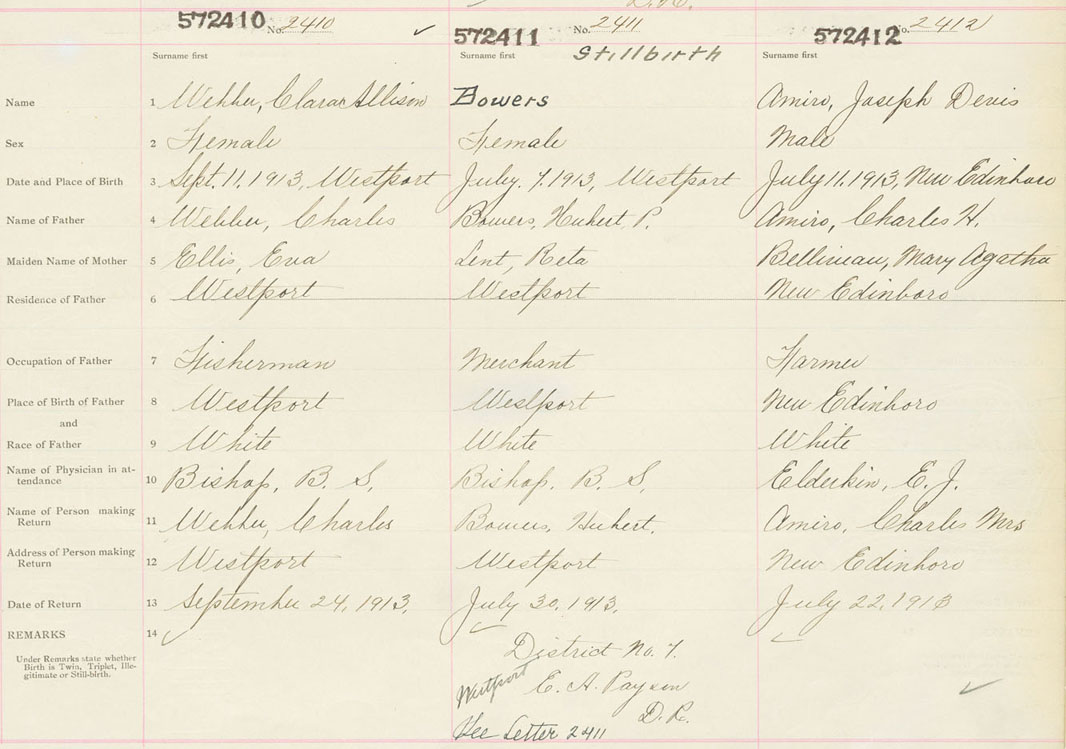 572410 No. 2410
572411 No. 2411
572412 No. 2412
Surname first
Surname first Stillbirth
Surname first
Name 1 Webber, Clara Allison Bowers Amiro, Joseph Devis
Sex 2 Female Female Male
Date and Place of Birth 3 Sept. 11, 1913, Westport July. 7. 1913, Westport July 11. 1913, New Edinboro
Name of Father 4 Webber, Charles Bowers, Hubert P. Amiro, Charles H.
Maiden Name of Mother 5 Ellis, Eva Lent, Reta Belliveau, Mary Agatha
Residence of Father 6 Westport Westport New Edinboro
Occupation of Father 7 Fisherman Merchant Farmer
Place of Birth of Father 8 Westport Westport New Edinboro
and
Race of Father 9 White White White
Name of Physician in at-
tendance 10 Bishop, B. S. Bishop, B. S. Elderkin, E. J.
Name of Person making
Return 11 Webber, Charles Bowers, Hubert. Amiro, Charles Mrs
Address of Person making
Return 12 Westport Westport New Edinboro
Date of Return 13 September 24, 1913. July 30, 1913. July 22, 1913
REMARKS 14
Under Remarks state whether
Birth is Twin, Triplet, Ille-
gitimate or Still-birth.
District No. 7.
Westport E. A. Payson
D. R.
See Letter 2411